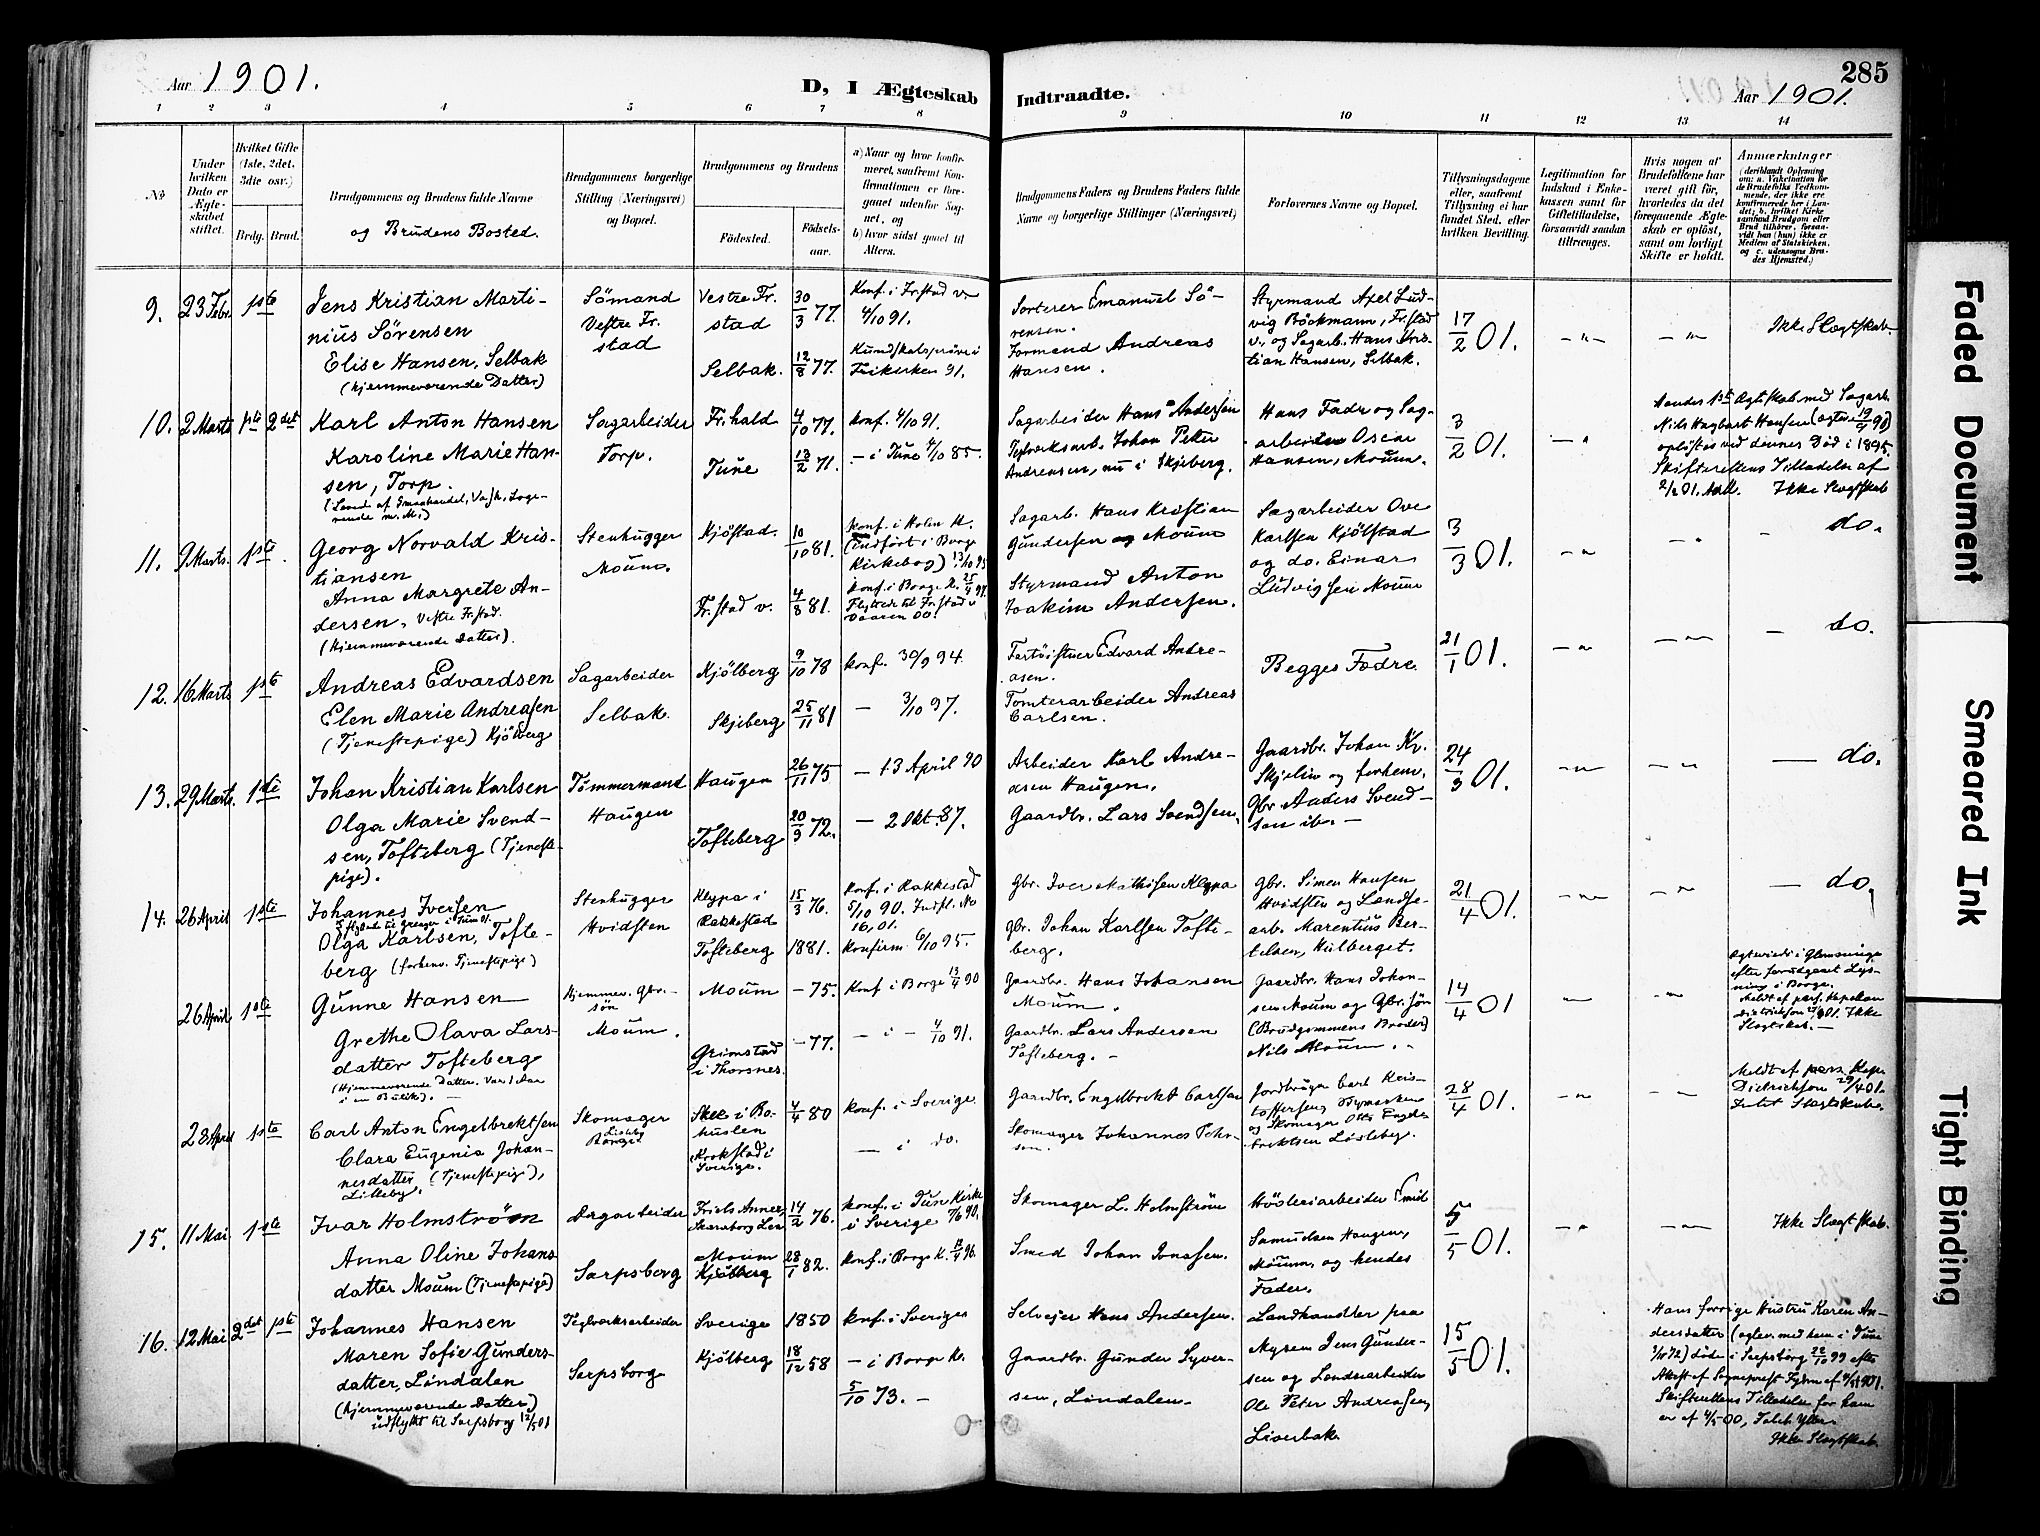 Aar 1901.
D, I Ægteskab Indtraadte.
285
Aar 1901.
1 2 3 4 5 6 7 8 9 10 11 12 13 14
No.
Under hvilken Dato er Ægteskabet stiftet.
Hvilket Gifte (1ste, 2det, 3die osv.)
Brdg. Brud.
Brudgommens og Brudens fulde Navne
og Brudens Bosted.
Brudgommens borgerlige Stilling (Næringsvei) og Bopæl.
Brudgommens og Brudens
Fødested.
Fødselsaar.
a) Naar og hvor konfirmeret, saafremt Konfirmationen er foregaaet udenfor Sognet, og
b) hvor sidst gaaet til Alters.
Brudgommens Faders og Brudens Faders fulde Navne og borgerlige Stillinger (Næringsvei)
Forlovernes Navne og Bopæl.
Tillysningsdagene eller, saafremt Tillysning ei har fundet Sted, efter hvilken Bevilling.
Legitimation for Indskud i Enkekassen samt for Giftetilladelse, forsaavidt saadan tiltrænges.
Hvis nogen af Brudefolkene har været gift før, hvorledes da det foregaaende Ægteskab er opløst, samt om lovligt Skifte er holdt.
Anmærkninger
(deriblandt Oplysning om: a. Vaksination for de Brudefolks Vedkommende, der ikke ere konfirmerede her i Landet; b. hvilket Kirkesamfund Brudgom eller Brud tilhører, forsaavidt han (hun) ikke er Medlem af Statskirken, og c. udensogns Brudes Hjemsted.)
9. 23 Febr. 1ste
Jens Kristian Martinius Sörensen
Elise Hansen, Selbak
(hjemmeværende Datter)
Sömand
Vestre Fr.stad
Vestre Fr.stad 30/3 77.
Selbak. 12/8 77.
Konf. i Fr.stad v. 4/10 91.
Kundskabspröve i Frikirken 91.
Sorterer Emanuel Sörensen.
Formand Andreas Hansen.
Styrmand Axel Ludvig Böckmann, Fr.stad v., og Sagarb. Hans Kristian Hansen, Selbak.
17/2 01.
Ikke Slægtskab.
10. 2 Marts 1ste 2det
Karl Anton Hansen
Karoline Marie Hansen, Torp.
Sagarbeider
Torp.
Fr.hald 4/10 77.
Tune 13/2 71.
Konf. 4/10 91.
- i Tune 4/10 85.
Sagarbeider Hans Andersen
Teglværksarb. Johan Peter Andreasen, nu i Skjeberg.
Hans Fader og Sagarbeider Oscar Hansen, Moum.
3/2 01.
Hendes 1ste Ægteskab med Sagarb. Nils Hagbart Hansen
oplöstes ved dennes Död i 1895.
Skifterettens Tilladelse af 2/2 01.
Ikke Slægtskab
11. 9 Marts. 1ste
Georg Norvald Kristiansen
Anna Margrete Andersen, Vestre Fr.stad.
(Hjemmeværende Datter).
Stenhugger
Moum.
Kjöstad. 10/10 81.
Fr.stad v. 4/8 81.
Konf. i Holm K. (indfört i Borge Kirkebog)
Konf. i Borge K.
Flyttede til Fr.stad v. Vaaren 00.
Sagarb. Hans Kristian Gundersen Moum
Styrmand Anton Joakim Andersen.
Sagarbeider Ove Karlsen Kjölstad og do. Einar Ludvigsen Moum
3/3 01.
do.
12. 16 Marts 1ste
Andreas Edvardsen
Elen Marie Andreasen
(Tjenestepige) Kjölberg
Sagarbeider
Selbak.
Kjölberg 9/10 78
Skjeberg 25/11 81
Konf. 30/9 94.
- 3/10 97.
Edvard Andreasen.
Tomterarbeider Andreas Carlsen.
Begges Fædre
21/1 01.
do.
13. 29 Marts. 1ste
Johan Kristian Karlsen
Olga Marie Svendsen, Tofteberg (Tjenestepige).
Tömmermand
Haugen
Haugen 26/11 75
Tofteberg 20/9 72.
- 13 April 90
- 2 Okt. 87.
Arbeider Karl Andreasen Haugen.
Gaardbr. Lars Svendsen,
Gaardbr. Johan Kr. Skjelin og forhenv. Gbr. Anders Svendsen ib. -
24/3 01.
do.
14. 26 April 1ste
Johannes Iversen
Olga Karlsen, Tofteberg (forhenv. Tjenestepige)
Stenhugger
Hvidsten
Kleppa i Rakkestad 15/3 76.
Tofteberg 1881.
Konf. i Rakkestad 5/10 90. Indfl. No 16, 01.
Konfirm. 6/10 95.
Gbr. Iver Mathisen Kleppa
Gbr. Johan Karlsen Tofteberg.
Gbr. Simen Hansen Hvidsten og Landsearb. Marentius Bertelsen, Hulberget.
21/4 01.
do.
26 April 1ste
Gunne Hansen
Grethe Olava Larsdatter Tofteberg
(Hjemmeværende Datter. Var 1 Aar i en Butik). -
Hjemmev. Gbr.sön
Moum.
Moum - 75.
Grimstad i Thorsnes. - 77.
Konf i Borge 13/4 90
- i - 4/10 91.
Gaardbr. Hans Johansen Moum.
Gaardbr. Lars Andersen Tofteberg. -
Gaardbr. Hans Johansen Moum og Gbr.sön (Brudgommens Broder) Nils Moum.
14/4 01
Ægteviede i Glemminge efter forudgaaet Lysning i Borge.
Meldt af pers. Kapellan Dietrichson Ikke Slægtskab. -
28 April 1ste
Carl Anton Engelbrektsen
Clara Eugenia Johannesdatter (Tjenestepige), Lilleby.
Skomager
Lisleby
Skee i Bohuslen 4/4 80
Krokstad i Sverige.
Konf. i Sverige.
- i do.
Gaardbr. Engelbrekt Carlsen
Skomager Johannes
Jordbruger Carl Kristoffersen, og Skomager Otto Engelbrektsen Lisleby.
28/4 01.
Meldt af pers. Kap. Dietrichson 29/4 01.
Intet Slægtskab.
15. 11 Mai 1ste
Ivar Holmström
Anna Oline Johansdatter Moum (Tjenestepige)
Dagarbeider
Sarpsborg
14/2 76.
Moum Kjölberg 28/1 82.
Konf. i Tun Kirke i Sverige 7/6 90.
Konf. i Borge K.
Skomager L. Holmström
Smed Johan Jonassen.
Hövleriarbeider Emil Samuelsen Haugen, Moum, og hendes Fader.
5/5 01.
Ikke Slægtskab.
16. 12 Mai 2det 1ste
Johannes Hansen
Maren Sofie Gundersdatter, Lindalen
(hjemmeværende Datter)
udflyttt til Sarpsborg 12/5 01
Teglværksarbeider
Sarpsborg
Sverige 1850
Kjölberg 18/12 58
Konf. i Sverige
- i Borge K.
5/10 73. -
Selveier Hans Andersen.
Gaardbr. Gunder Syversen, Lindalen
Landhandler paa Mysen Jens Gundersen og Landearbeider Ole Peter Andreasen, Liverbak.
15/5 01.
Hans forrige Hustru Karen Andersdatter (ægtev. med ham i Tune
döde i Sarpsborg 22/10 99 efter Attest af Sogneprest
Skifterettens Tilladelse for ham er af 4/5 00,
Ikke Slægtskab.
Faded Document
Smeared Ink
Tight Binding